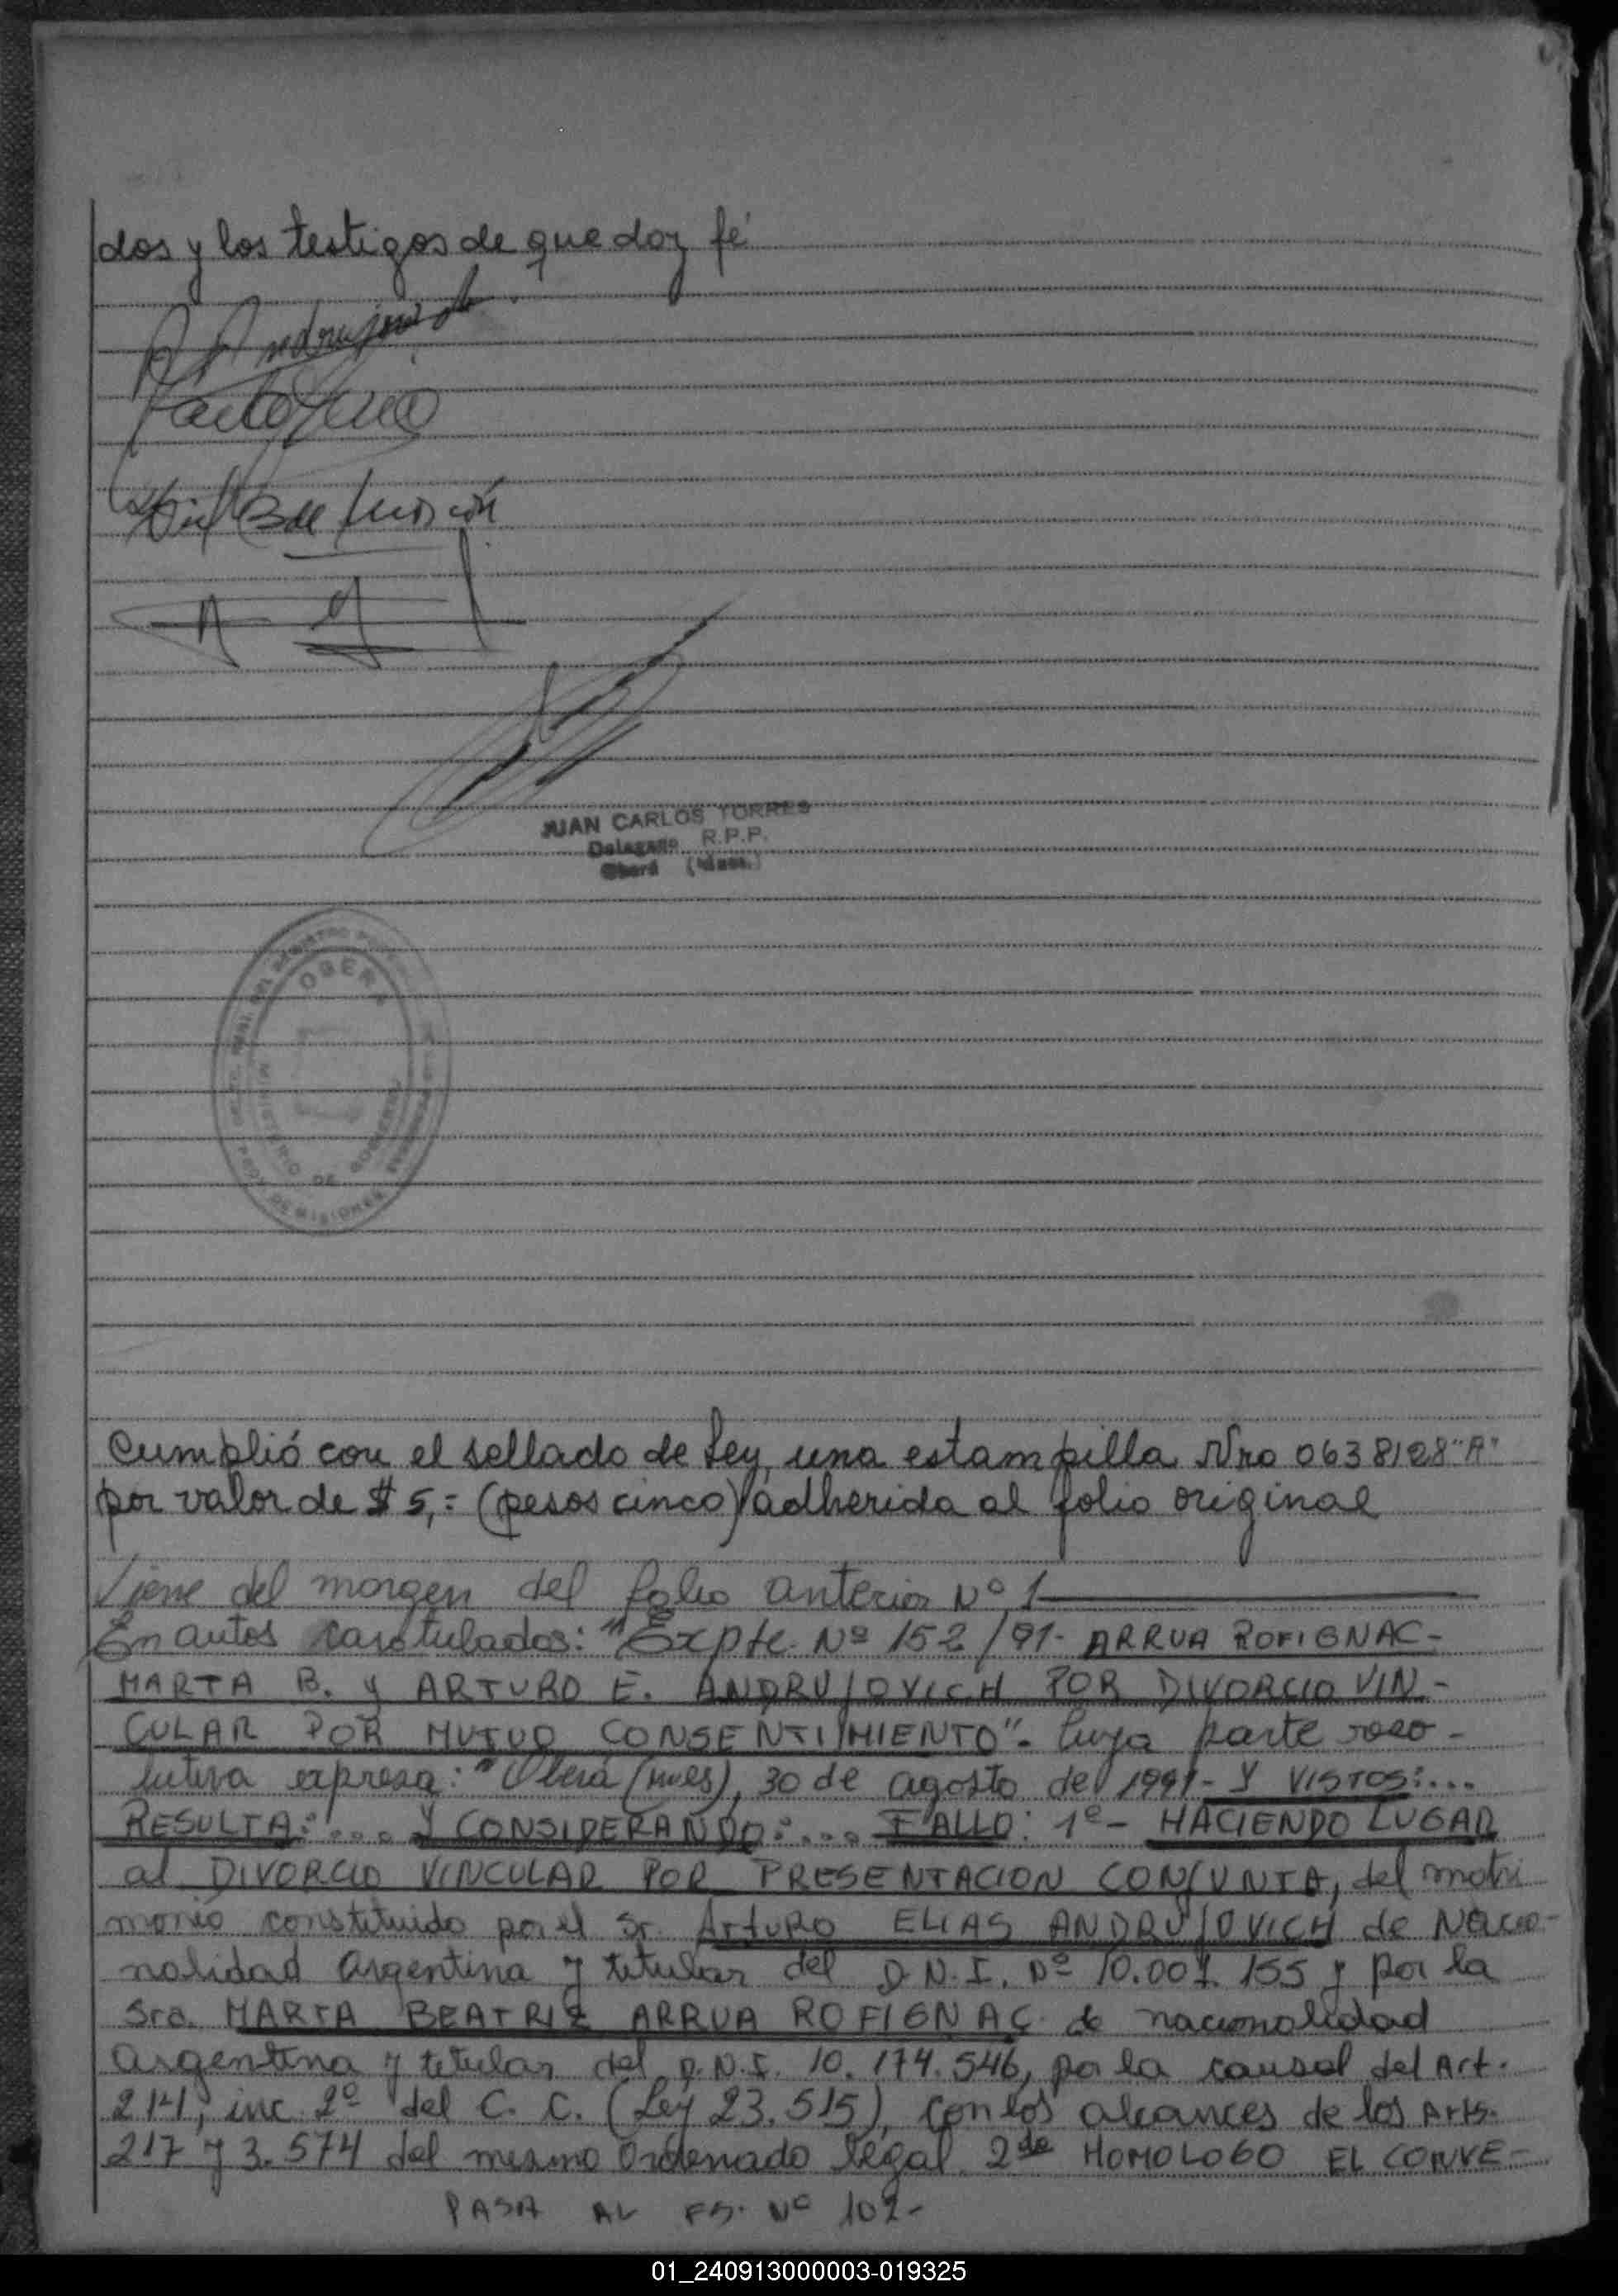 dos y los testigos de que doy fé
JUAN CARLOS TORRES
Delegado R.P.P.
Oberá (Mnes.)
OBERA
MINISTERIO DE GOBIERNO
PROV. DE MISIONES
Cumplió con el sellado de Ley, una estampilla Nro 0638128 "A"
por valor de $ 5,= (pesos cinco) adherida al folio original
Viene del margen del folio anterior Nº 1
En autos caratulados: "Expte. Nº 152/91- ARRUA ROFIGNAC-
MARTA B. y ARTURO E. ANDRUJOVICH POR DIVORCIO VIN-
CULAR POR MUTUO CONSENTIMIENTO"- Cuya parte reso-
lutiva expresa: "Oberá (Mnes), 30 de agosto de 1991- Y VISTOS:...
RESULTA:... Y CONSIDERANDO:... FALLO: 1º- HACIENDO LUGAR
al DIVORCIO VINCULAR POR PRESENTACION CONJUNTA, del matri
monio constituido por el Sr. ArtuRo ELIAS ANDRUJOVICH de Nacio-
nalidad Argentina y titular del D.N.I. Nº 10.007.155 y por la
Sra. MARTA BEATRIZ ARRUA ROFIGNAC de nacionalidad
Argentina y titular del D.N.I. 10.174.546, por la causal del Art.
214, inc. 2º del C. C. (Ley 23.515), con los alcances de los Arts.
217 y 3.574 del mismo Ordenado legal 2do HOMOLOGO EL CONVE-
PASA AL Fº. Nº 102-
01_240913000003-019325